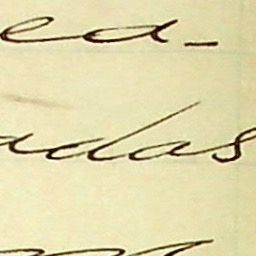 ed-
adas